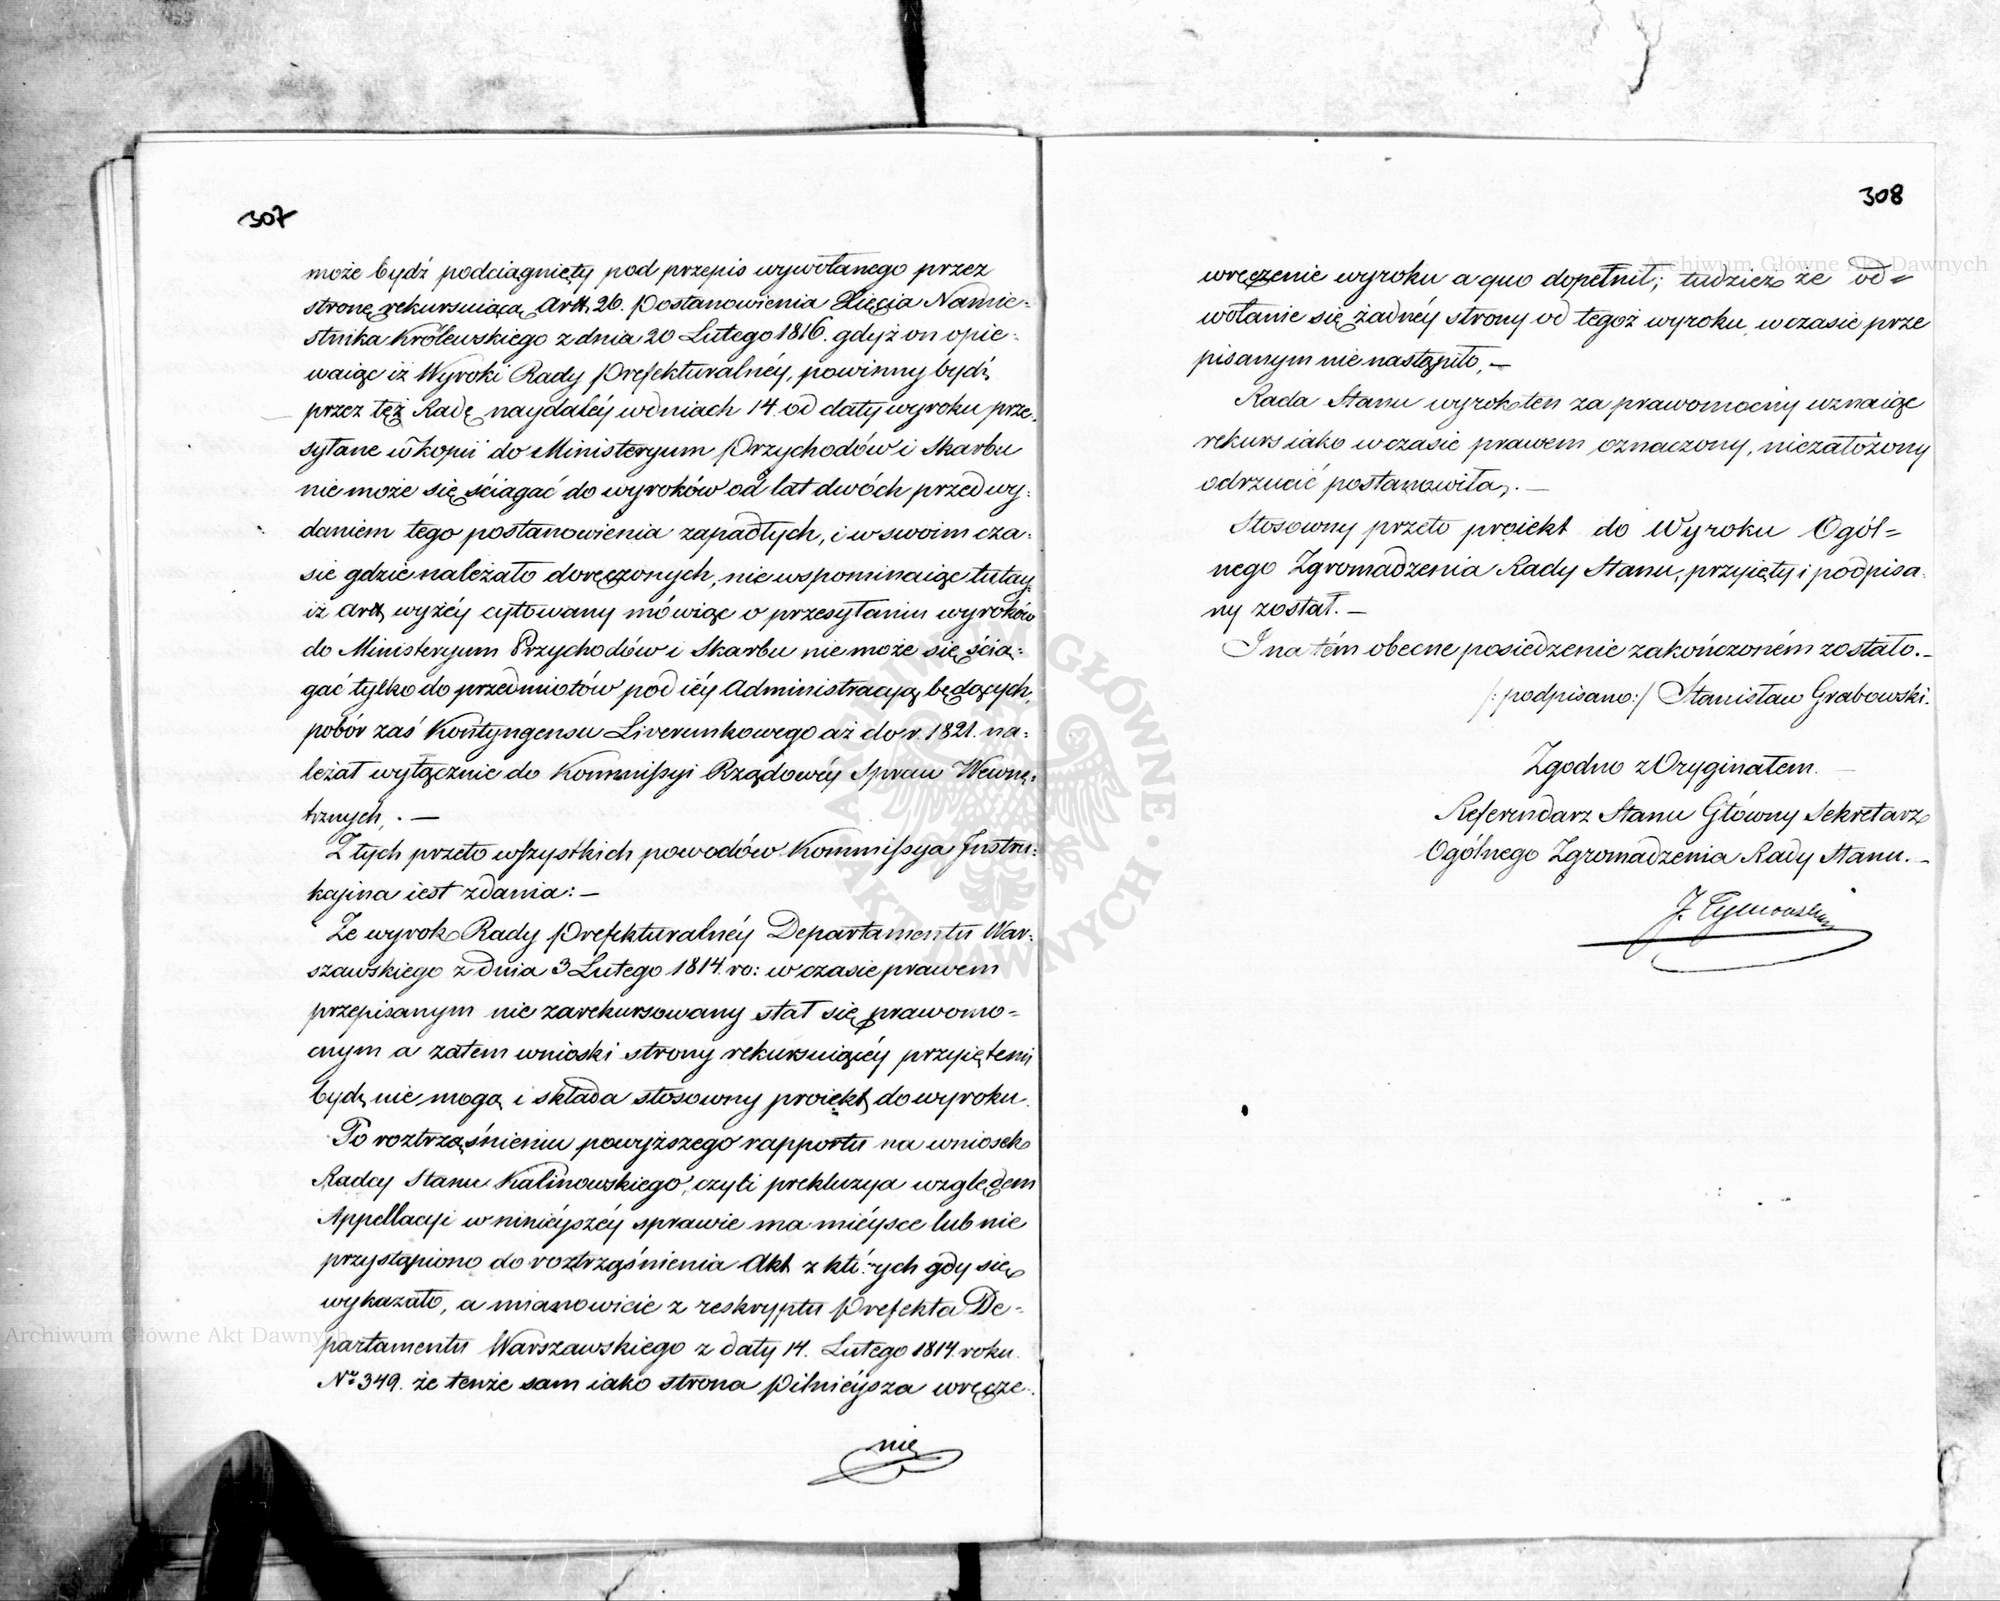 307
może bydź podciągnięty pod przepis wywołanego przez
stronę rekursuiącą Artt. 26. Postanowienia Xięcia Namie-
stnika Królewskiego z dnia 20 Lutego 1816. gdyż on opie-
waiąc iż Wyroki Rady Prefekturalnéy, powinny bydź
przez tęż Radę naydaléy w dniach 14. od daty wyroku prze-
syłane w kopii do Ministeryum Przychodów i Skarbu
nie może się ściągać do wyroków od lat dwóch przed wy-
daniem tego postanowienia zapadłych, i w swoim cza-
sie gdzie należało doręczonych, nie wspominaiąc tutay
iż Artt. wyżéy cytowany mówiąc o przesyłaniu wyroków
do Ministeryum Przychodów i Skarbu nie może się ścią-
gać tylko do przedmiotów pod iéy Administracyą będących,
pobór zaś Kontyngensu Liwerunkowego aż do r. 1821. na-
leżał wyłącznie do Kommissyi Rządowéy Spraw Wewnę-
trznych. —
Z tych przeto wszystkich powodów Kommissya Instru-
kcyina iest zdania: —
Że wyrok Rady Prefekturalnéy Departamentu War-
szawskiego z dnia 3 Lutego 1814. ro: w czasie prawem
przepisanym nie zarekursowany stał się prawomo-
cnym a zatem wnioski strony rekursuiącéy przyiętemi
bydź nie mogą i składa stosowny proiekt do wyroku.
Po roztrząśnieniu powyższego rapportu na wniosek
Radcy Stanu Kalinowskiego, czyli prekluzya względem
Appellacyi w ninieyszéy sprawie ma mieysce lub nie
przystąpiono do roztrząśnienia Akt z których gdy się
wykazało, a mianowicie z reskryptu Prefekta De-
partamentu Warszawskiego z daty 14. Lutego 1814. roku.
No 349. że tenże sam iako strona pilnieysza wręcze-
nie
308
wręczenie wyroku a quo dopełnił; tudzież że od=
wołanie się żadnéy strony od tegoż wyroku, w czasie prze
pisanym nie nastąpiło, —
Rada Stanu wyrok ten za prawomocny uznaiąc
rekurs iako w czasie prawem oznaczony, niezałożony
odrzucić postanowiła. —
Stosowny przeto proiekt do Wyroku Ogól=
nego Zgromadzenia Rady Stanu, przyięty i podpisa-
ny został. —
I na tém obecne posiedzenie zakończoném zostało. —
/: podpisano :/ Stanisław Grabowski.
Zgodno z Oryginałem.
Referendarz Stanu Główny Sekretarz
Ogólnego Zgromadzenia Rady Stanu. —
J. Tymowski
Archiwum Główne Akt Dawnych
Archiwum Główne Akt Dawnych
ARCHIWUM GŁÓWNE AKT DAWNYCH